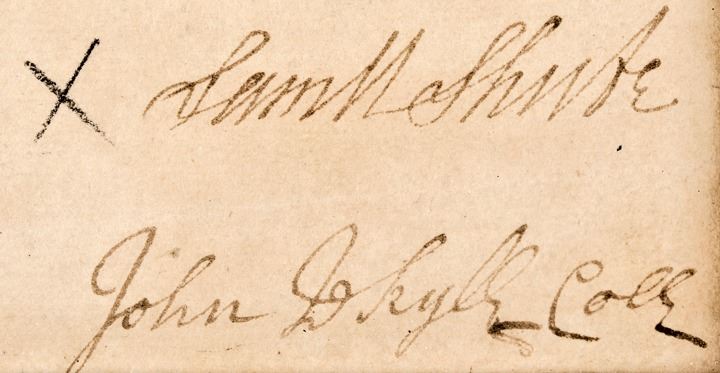 X Samll Shute
John Jekyll Coll